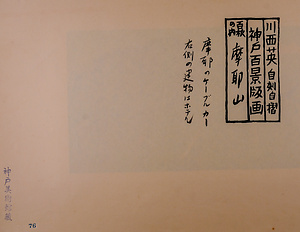 川西英 自刻自摺
神戸百景版画
百景の内 摩耶山
摩耶のケーブルカー
右側の建物はホテル
神戸美術館蔵
76